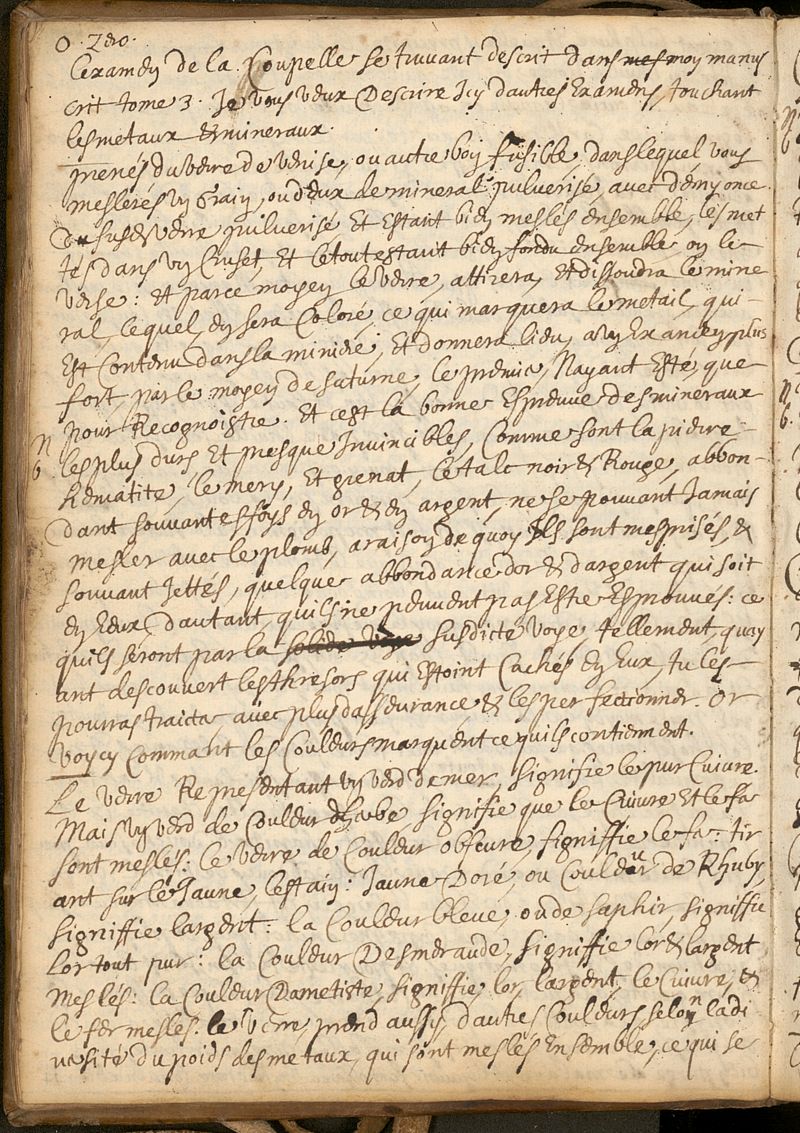 0. Zero.
Lexamen de la Coupelle se truvant descrit dans mes mon manus
crit tome 3. Je vous veux Descrire Icy dautres Examens, touchant
les metaux & mineraux.
prenés du verre de venise, ou autre bon fusible, dans lequel vous
meslerés un Grain, ou deux de mineral pulverisé, avec demy once
du susd verre pulverisé Et Estant bien meslés ensemble, les met
tés dans un Cruset, Et le tout estant bien fondu ensemble on le
verse: et par ce moyen le verre, attirera, et dissoudra le mine
ral, lequel en sera Coloré, ce qui marquera le metail, qui
Est Contenu dans la miniere, Et donnera lieu, a un Examen plus
fort, par le moyen de saturne, le premier Nayant Esté, que
pour Recognoistre. Et cest la bonne Espreuve des mineraux
N
6
les plus durs Et presque Invincibles, Comme sont la pierre
hematite, lemery, Et grenat, le talc noir & Rouge, abbon
dant souvantesfoys en or & en argent, ne se pouvant Jamais
mesler avec le plomb, a raison de quoy Ils sont mesprisés, &
souvant Jettés, quelque abbondance dor & dargent qui soit
en Eeux, dautant quils ne peuvent pas Estre Esprouvés: ce
quils seront par la solide voye susdicte voye, tellement, quay
ant descouvert les thresors qui Estoint Cachés en Eux, tu les
pourras traicter avec plus dasseurance & les perfectionner. Or
voycy Commant les Couleurs marquent ce quils contiennent.
Le verre Representant un verd de mer, signifie le pur Cuivre.
Mais un verd de Couleur dherbe signifie que le Cuivre Et le fer
sont meslés: le verre de Couleur obscure, signiffie le fer: tir
ant sur le Jaune, lestain: Jaune Doré, ou Couleur de Rhuby,
signiffie largent: la Couleur bleue, ou de saphir, signiffie
Lor tout pur: la Couleur Desmeraude, signiffie lor & largent
Meslés: la Couleur Dametiste, signiffie, lor, largent, le Cuivre, &
le fer meslés: le verre, prend aussy, dautres Couleurs selon la di
versité du poids des metaux, qui sont meslés Ensemble, ce qui se